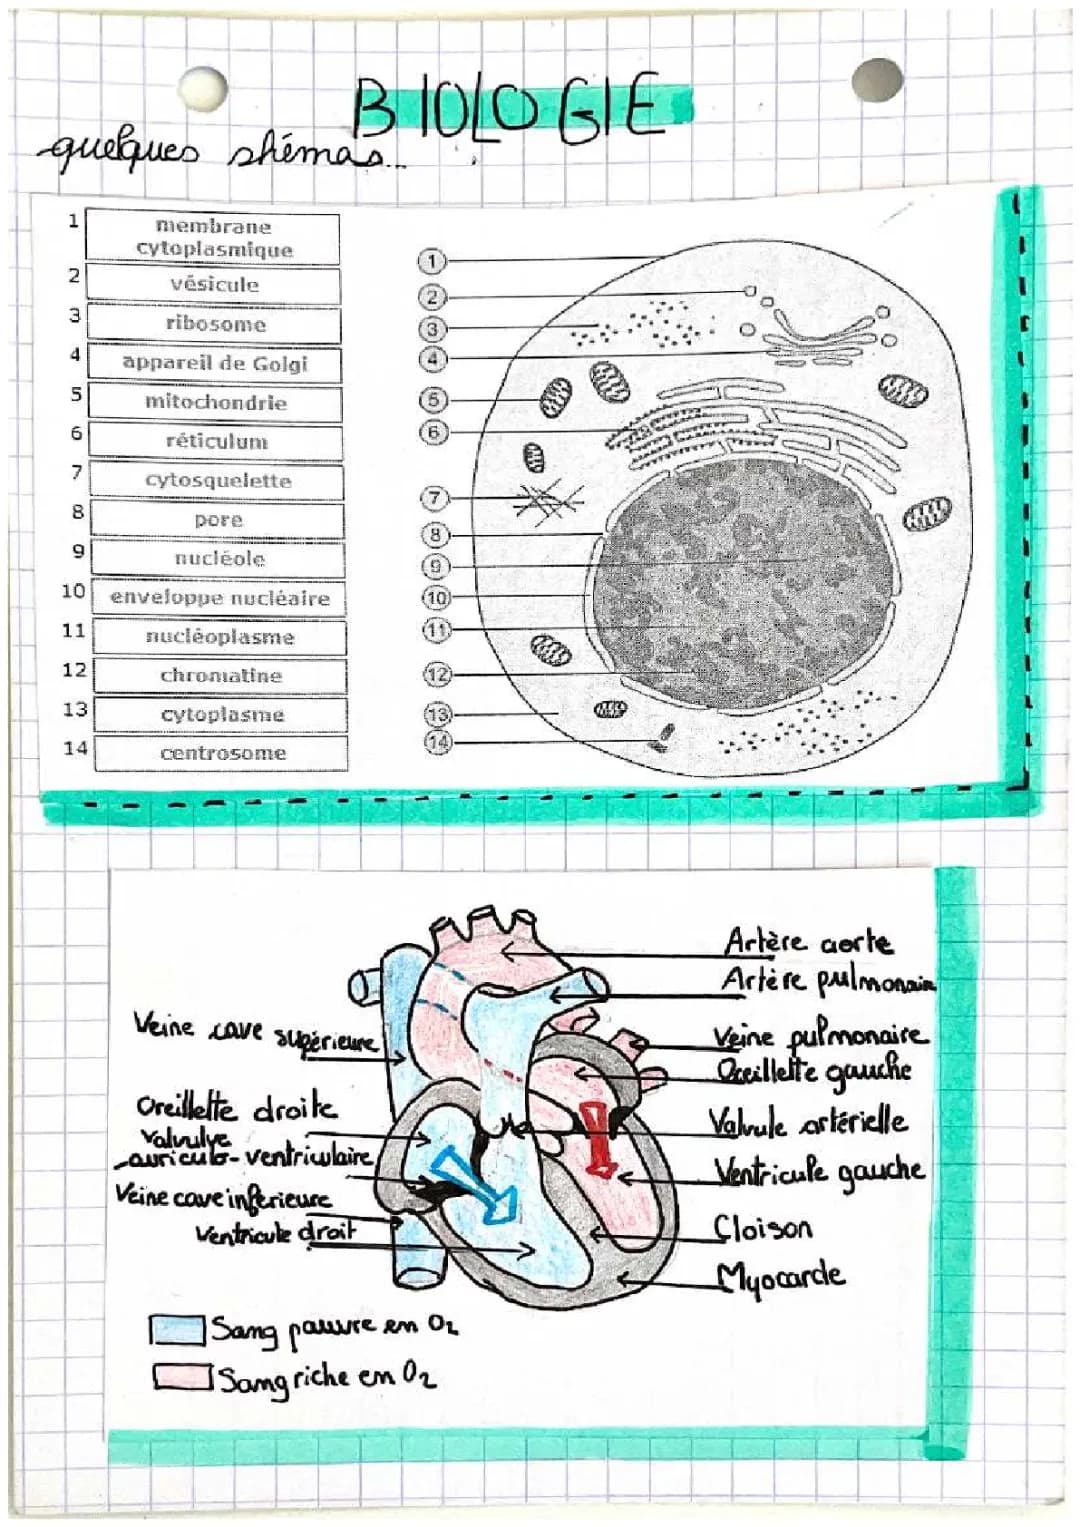 BIOLOGIE
quelques shémas...
1 membrane
cytoplasmique
2 vésicule
3 ribosome
4 appareil de Golgi
5 mitochondrie
6 réticulum
7 cytosquelette
8 pore
9 nucléole
10 enveloppe nucléaire
11 nucléoplasme
12 chromatine
13 cytoplasme
14 centrosome
1
2
3
4
5
6
7
8
9
10
11
12
13
14
Artère aorte
Artère pulmonair
Veine cave supérieure
Veine pulmonaire
Oreillette gauche
Oreillette droite
Valvule artérielle
Valvulve
auriculo-ventriculaire
Ventricule gauche
Veine cave inférieure
Ventricule droit
Cloison
Myocarde
Sang pauvre en O2
Sang riche en O2